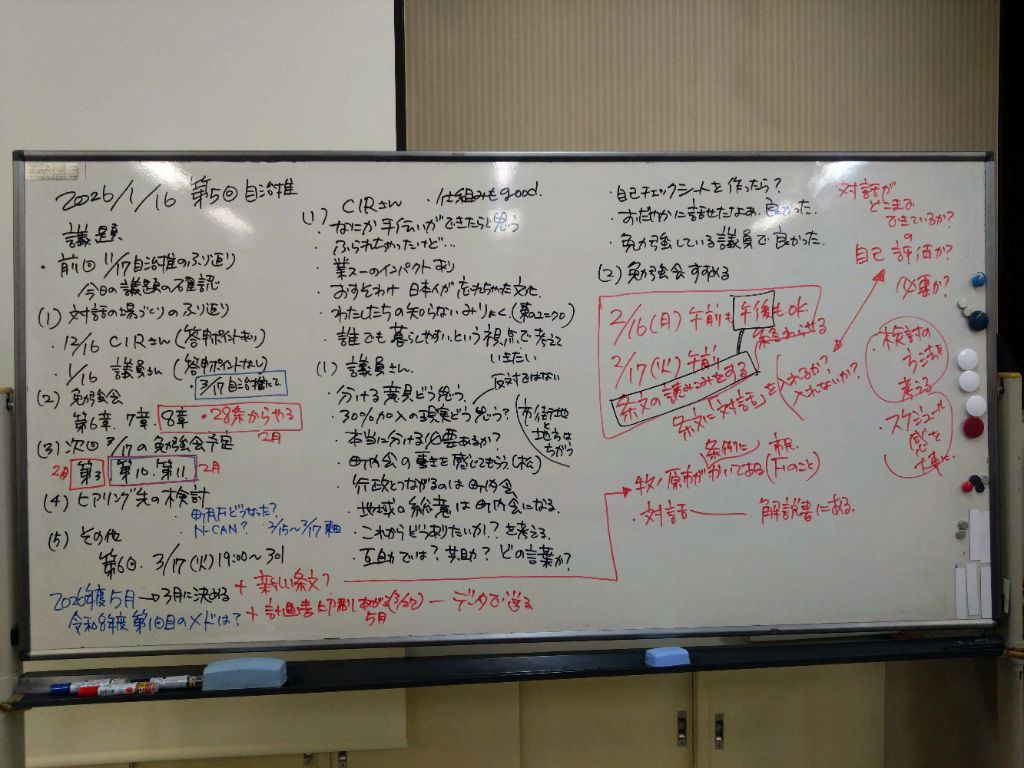 2026/1/16 第5回 自治推
議題
・前回 11/17 自治推のふり返り
今日の議題の確認
(1) 対話の場づくりのふり返り
・12/16 CIRさん (答申ポイントあり)
・1/16 議員さん (答申ポイントなし)
・3/17 自治推にて
(2) 勉強会
第6章、7章、8章 ・28条からやる
2月
(3) 次回 3/17 の勉強会予定
2月 第3 第10、第11 2月
(4) ヒアリング先の検討
・町内Fどうなった?
・N-CAN? 3/15〜3/17
(5) その他
第6回 3/17(火) 19:00〜 301
2026年度 5月 → 3月に決める + 新しい条文?
令和8年度 第1回目のメドは? + 計画書
5月
― データで送る
(1) CIRさん ・仕組みもgood.
・なにか手伝いができたらと思う
・ふられなかったけど…
・業スーのインパクトあり
・おすそわけ 日本人が忘れちゃった文化
・わたしたちの知らないみりょく(第9ユニクロ)
・誰でも暮らしやすいという視点で考えて
いきたい
(1) 議員さん.
・分ける意見どう思う. 反対ではない
・30%加入の現実どう思う?
・本当に分ける必要あるか?
市街地
と地方は
ちがう
・町内会の重さを感じてもらう(松)
・行政とつながるのは町内会
・地域の総意は町内会になる.
・これからどうありたいか?を考える.
・互助では?共助?どの言葉か?
・自己チェックシートを作ったら?
・おだやかに話せたなぁ、良かった.
・勉強している議員で良かった.
(2) 勉強会すすめる
2/16(月) 午前も午後もOK.
2/17(火) 午前
条文の読みこみをする
条文に「対話」を 入れるか?
入れないか?
条例に
・牧ノ原市がかいてある (市のこと)
・対話 ―― 解説書にある.
対話が
どこまで
できているか?
自己評価か?
必要か?
・検討の
方法を
考える
・スケジュール
感を
大事に.